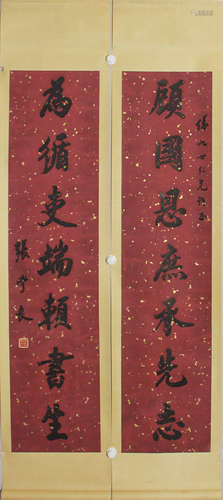 顧國恩庶承先志
世仁兄
為循吏端賴書生
張